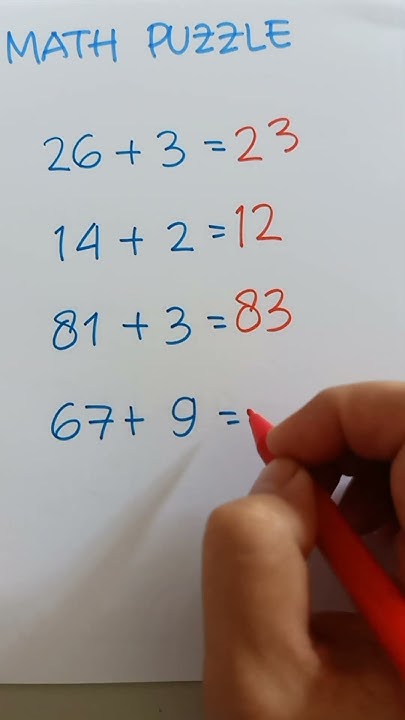 MATH PUZZLE
26 + 3 = 23
14 + 2 = 12
81 + 3 = 83
67 + 9 =